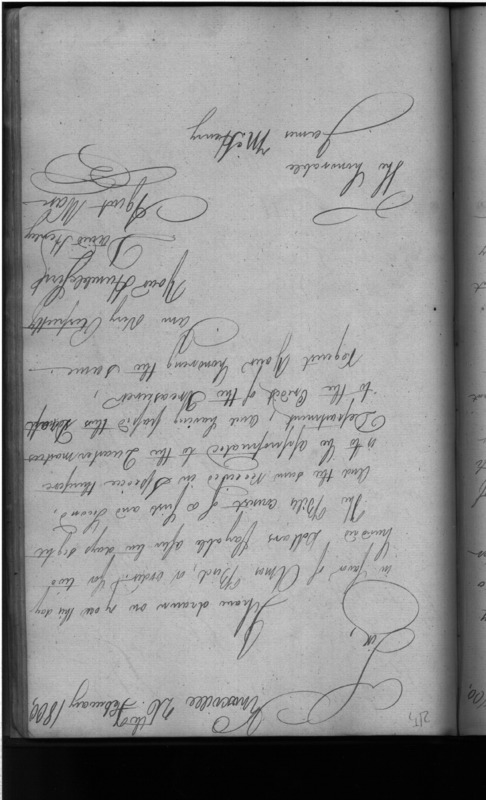 Knoxville 26th February 1800,
Sir,
I have drawn on you this day
in favor of Amos Bird, or order for two
hundred Dollars payable after ten days sight
The Bills consist of a first and second,
and the sum received in Specie therefor
is to be appropriated to the Quartermasters
Department, and having passed this
to the Credit of the Treasurer,
request Your honoring the same.
I am Very Respectfully
Your Humble Servt
David Henley
Agent War
The honorable
James McHenry